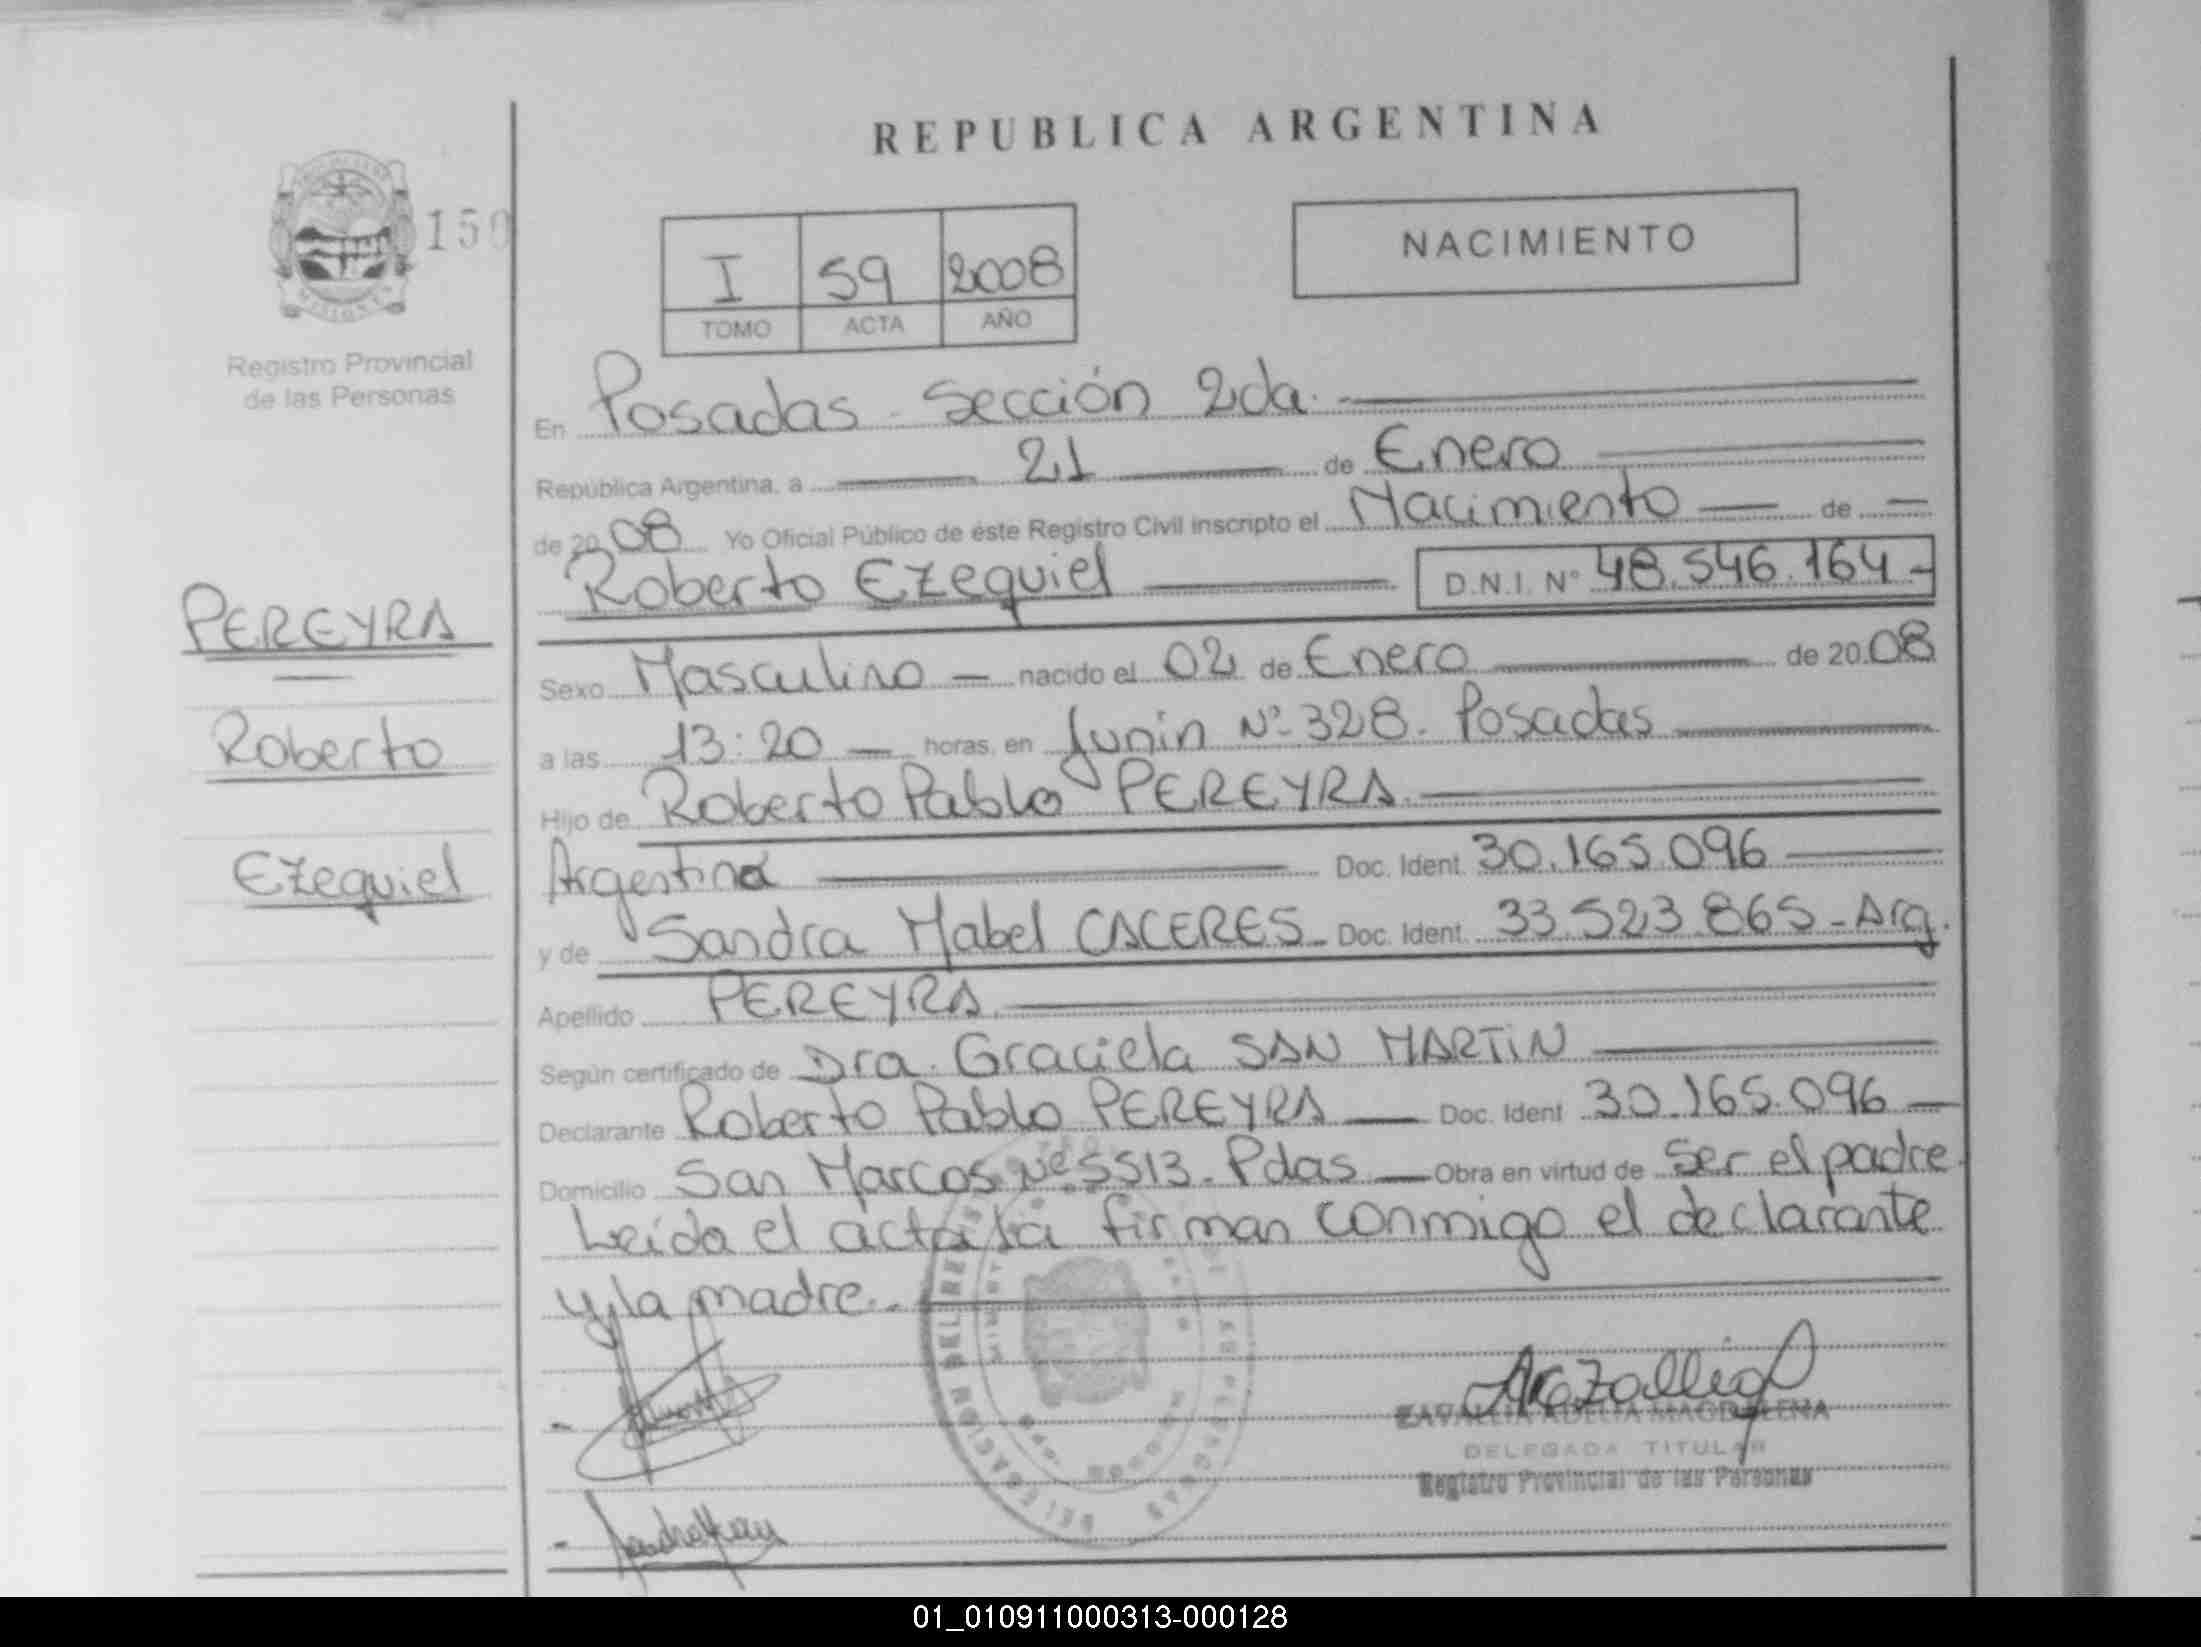 REPUBLICA ARGENTINA
150
I 59 2008
TOMO ACTA AÑO
NACIMIENTO
Registro Provincial
de las Personas
MISIONES
En Posadas - Sección 2da.
República Argentina, a 21 de Enero
de 2008 Yo Oficial Público de éste Registro Civil inscripto el Nacimiento — de —
Roberto Ezequiel D.N.I. N° 48.546.164-
PEREYRA
Roberto
Ezequiel
Sexo Masculino — nacido el 02 de Enero de 2008
a las 13:20 — horas, en Junín N° 328. Posadas
Hijo de Roberto Pablo PEREYRA
Argentina Doc. Ident. 30.165.096
y de Sandra Mabel CACERES - Doc. Ident. 33.523.865 - Arg.
Apellido PEREYRA
Según certificado de Dra. Graciela SAN MARTIN
Declarante Roberto Pablo PEREYRA — Doc. Ident 30.165.096 —
Domicilio San Marcos N° 5513. Pdas — Obra en virtud de ser el padre.
Leída el acta la firman conmigo el declarante
y la madre.-
ZAVALLIA ADELIA MAGDALENA
DELEGADA TITULAR
Registro Provincial de las Personas
01_010911000313-000128